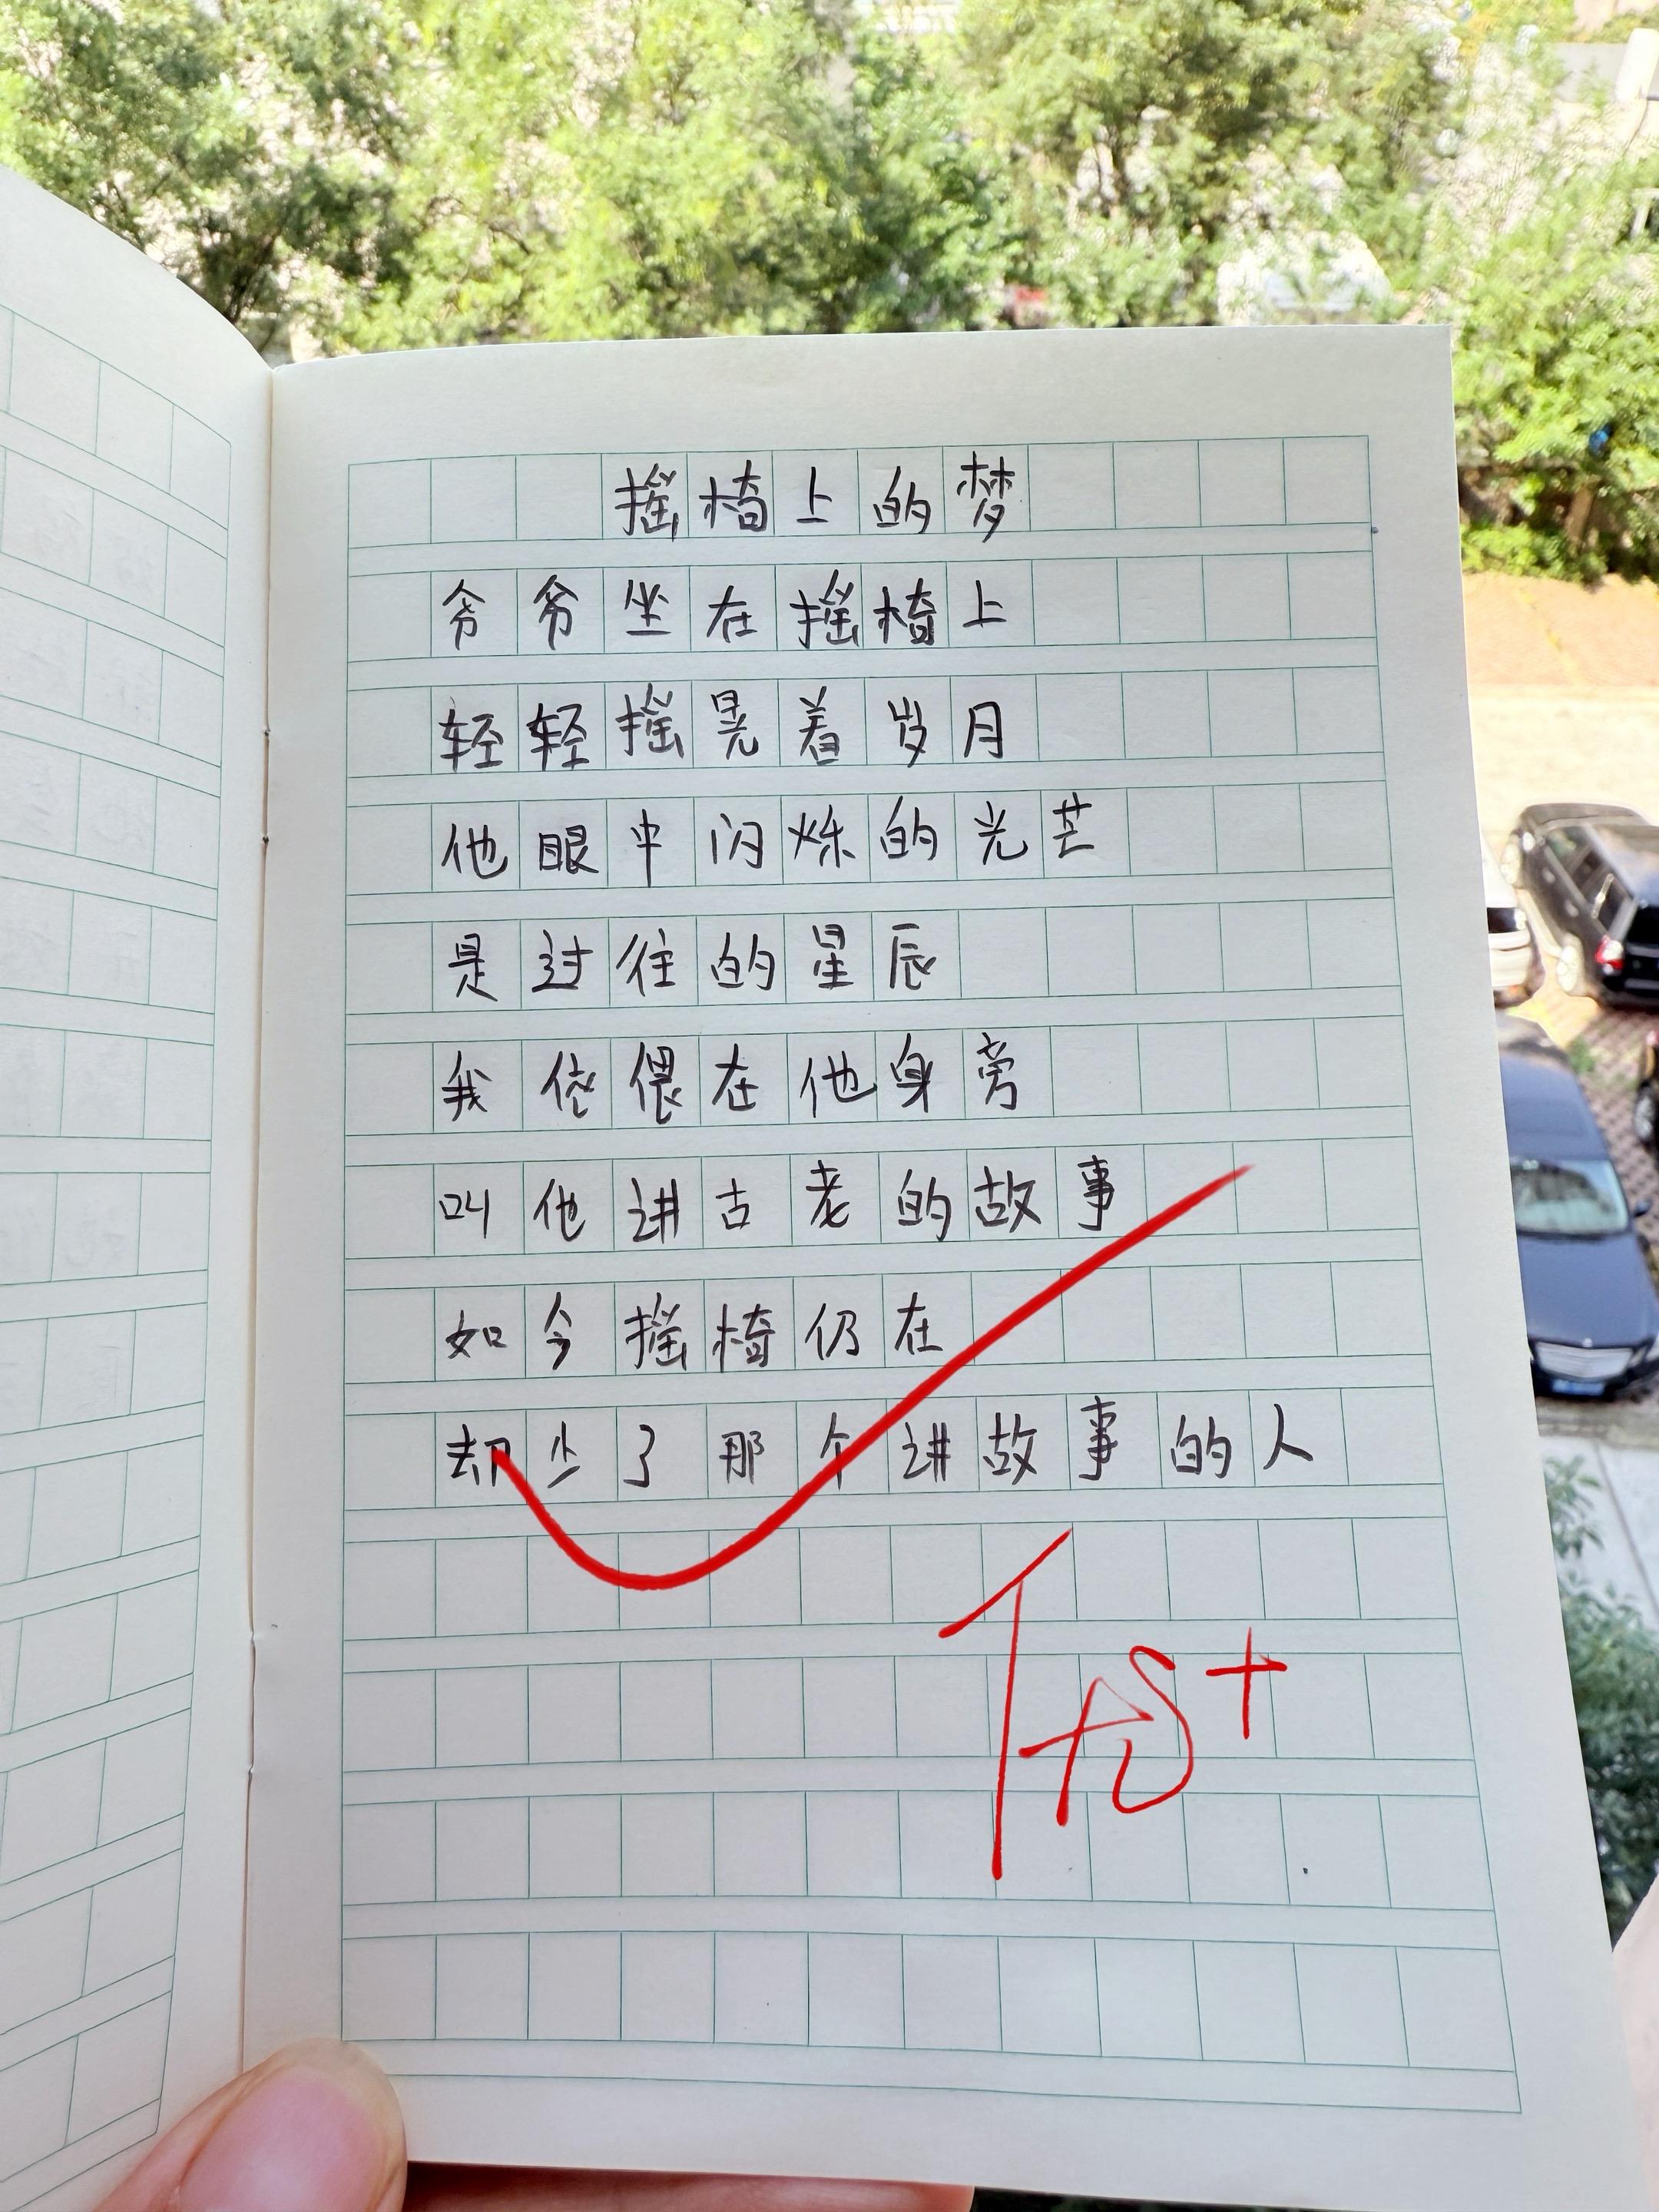 摇椅上的梦
爷爷坐在摇椅上
轻轻摇晃着岁月
他眼中闪烁的光芒
是过往的星辰
我依偎在他身旁
叫他讲古老的故事
如今摇椅仍在
却少了那个讲故事的人